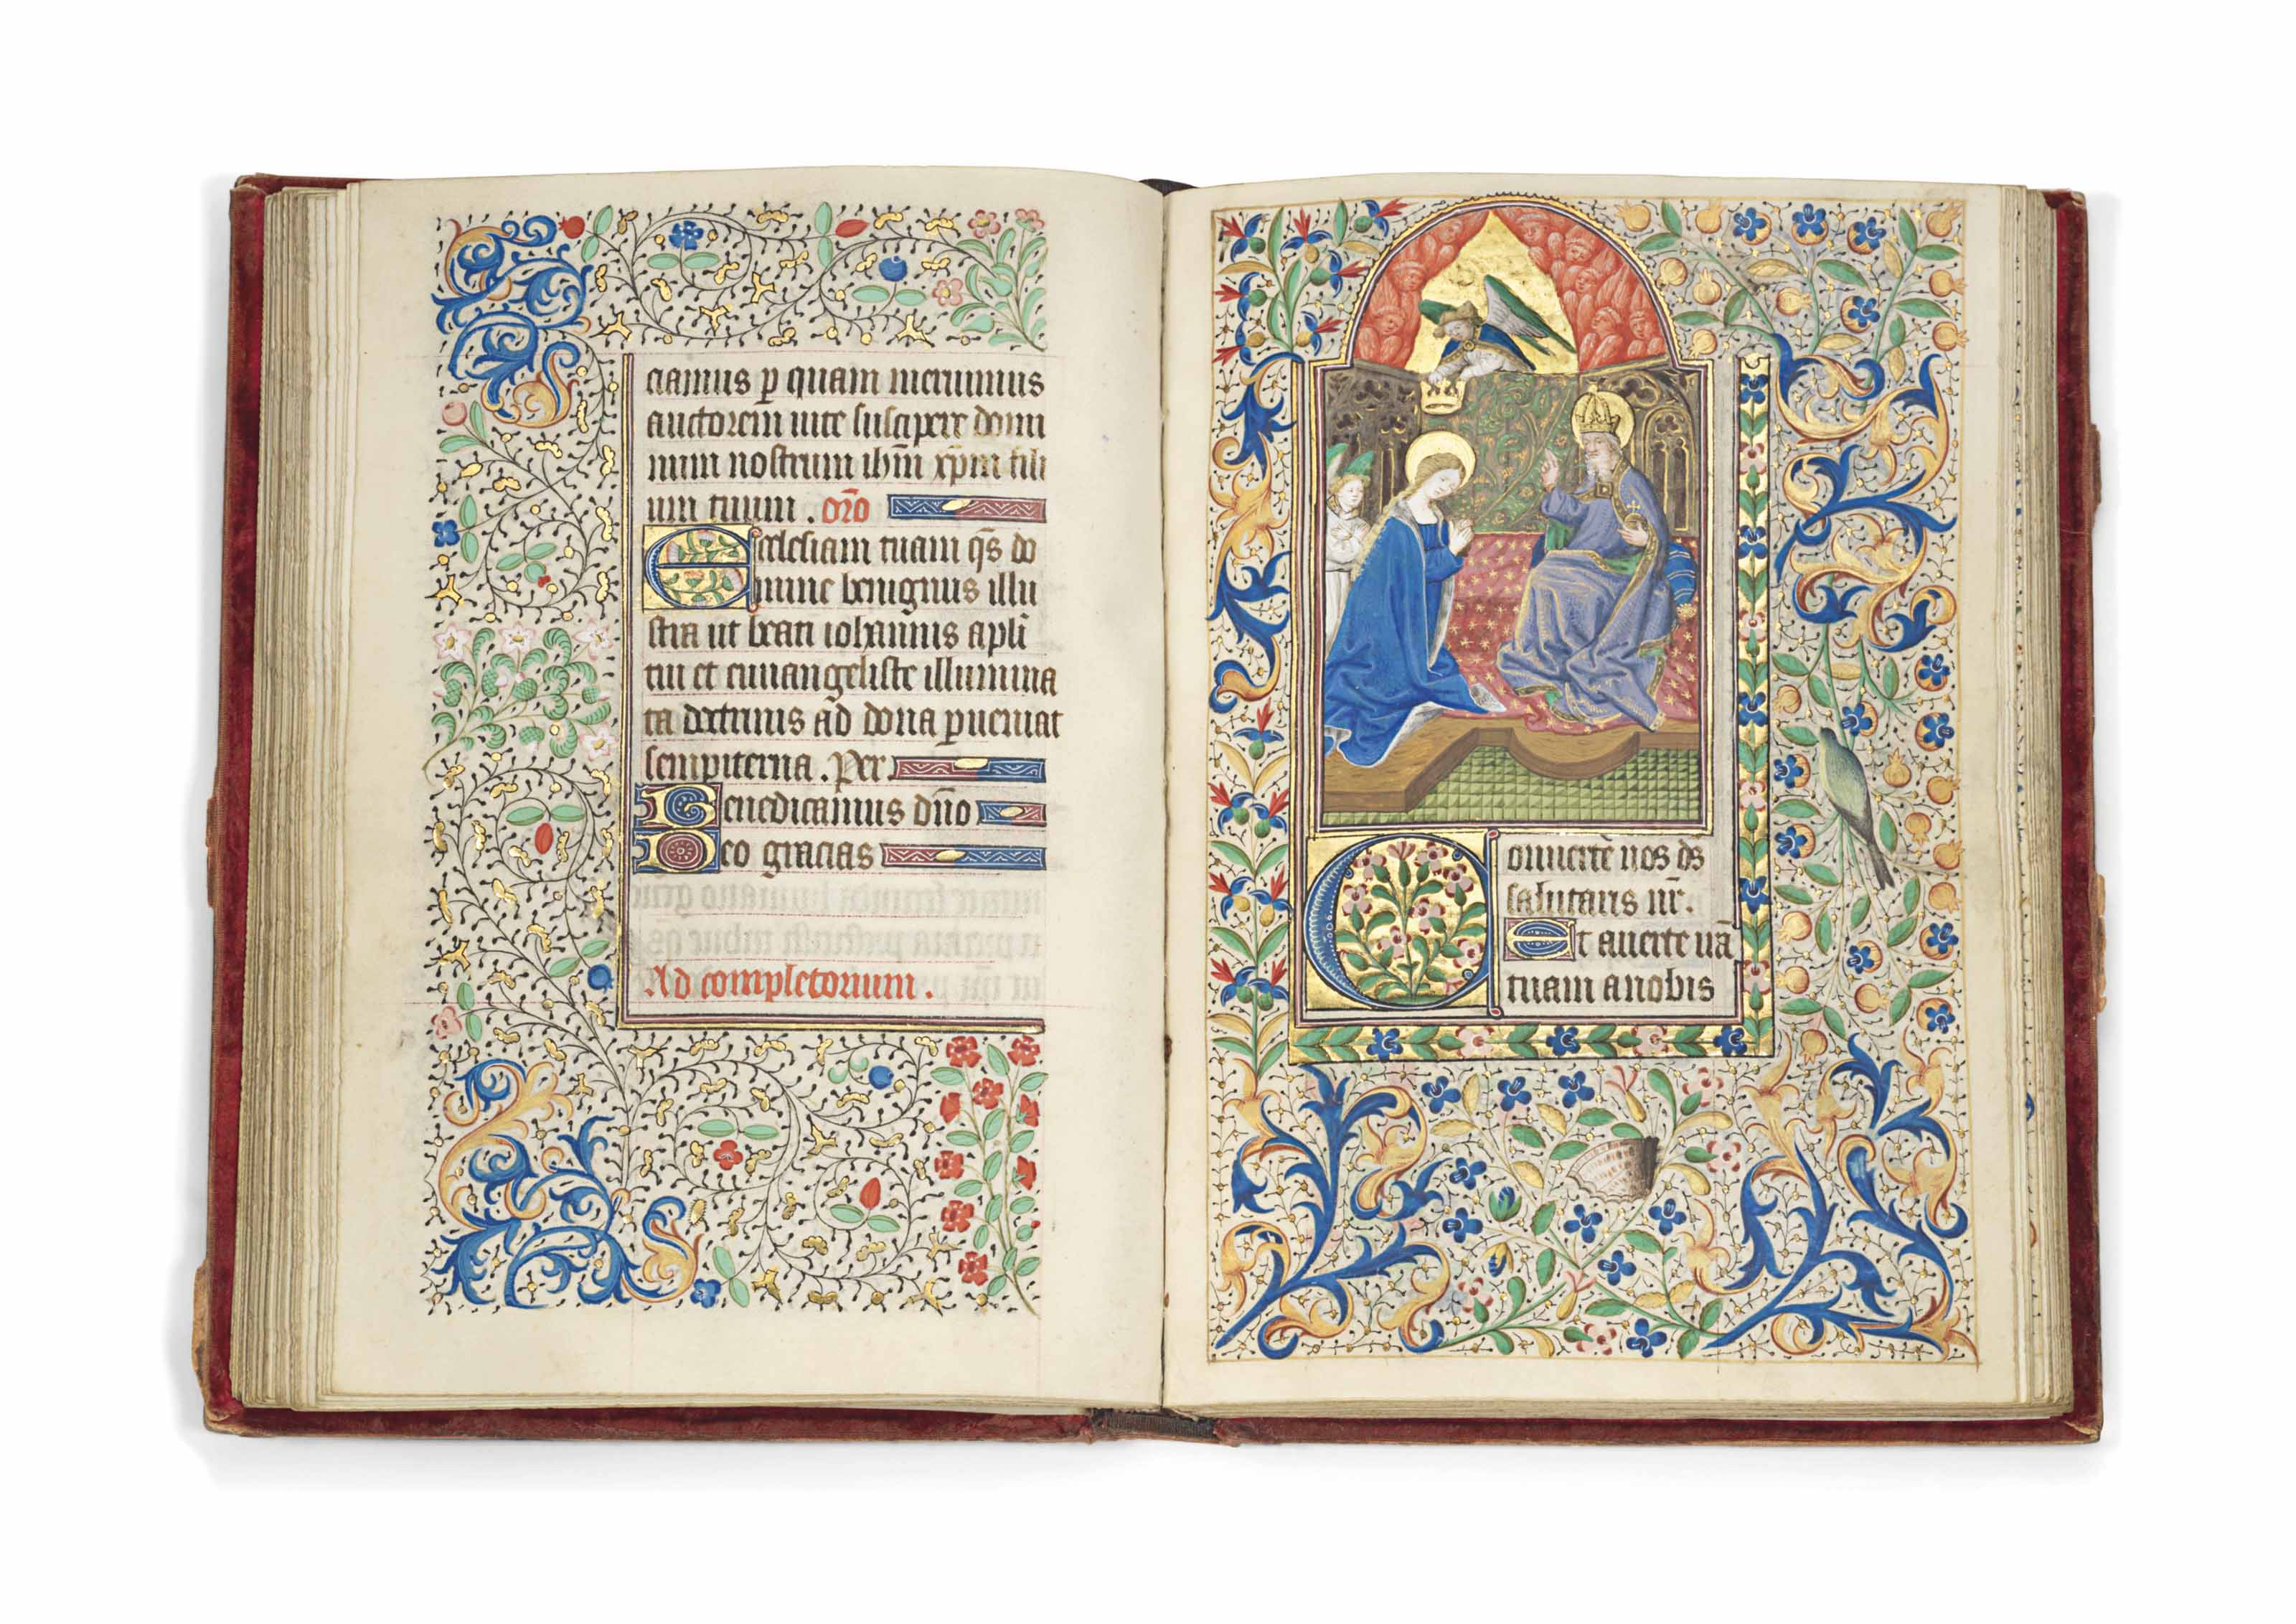 ciamus p quam meruimus
auctorem uite suscipere domi
num nostrum ihm xpm fili
um tuum . oro
Ecclesiam tuam qs do
mine benignus illu
stra ut beati iohannis apli
tui et euuangeliste illumina
ta doctrinis ad dona pueniat
sempiterna . Per
Benedicamus dno
Deo gracias
Ad completorium .
Conuerte nos ds
salutaris nr .
Et auerte ira
tuam a nobis